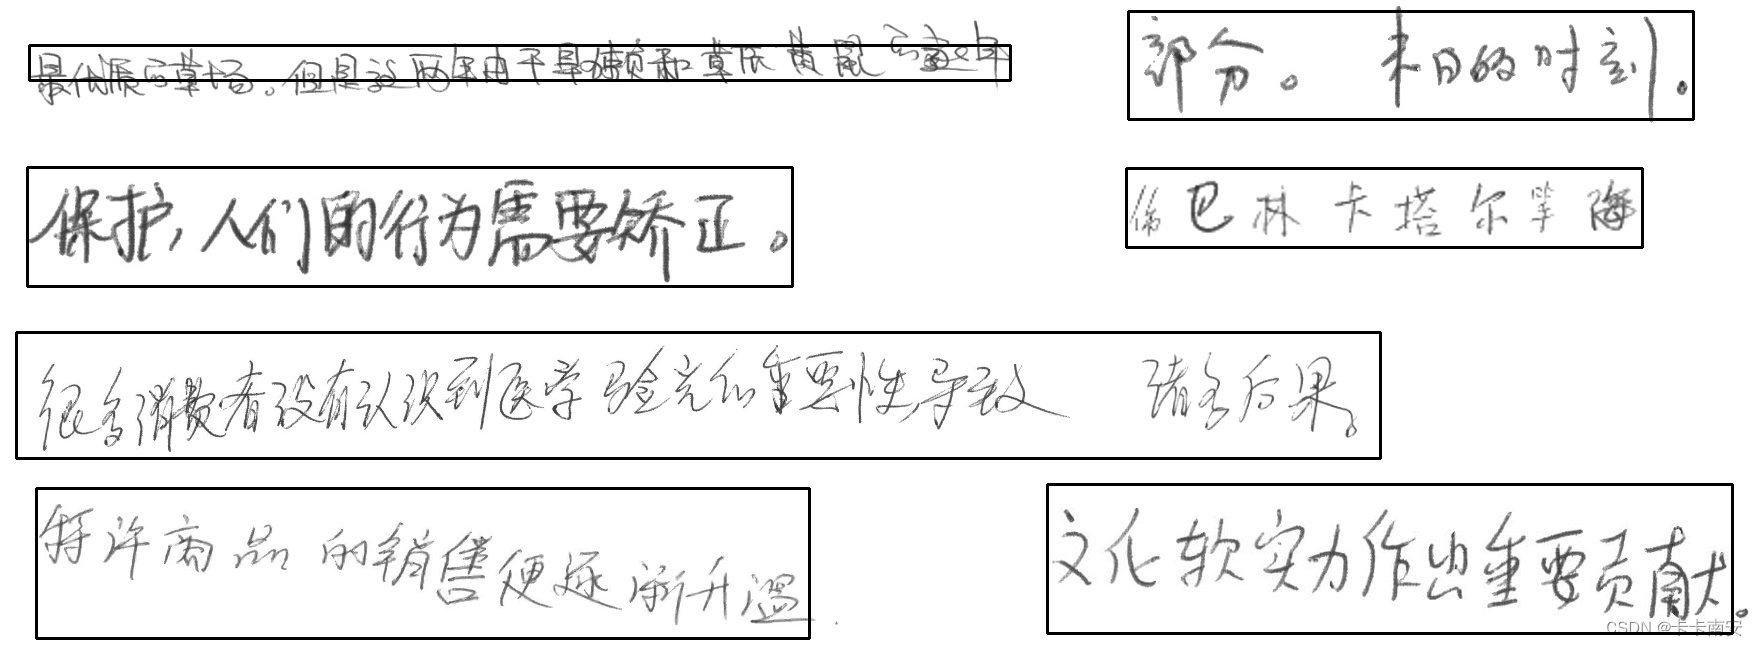 最优质的草场。但是这两年由于旱獭和草原黄鼠
部分。 末日的时刻。
保护，人们的行为需要矫正。
巴林卡塔尔
很多消费者没有认识到医学验光的重要性,导致 诸多后果。
特许商品的销售便逐渐升温
文化软实力作出重要贡献。
CSDN @卡卡南安